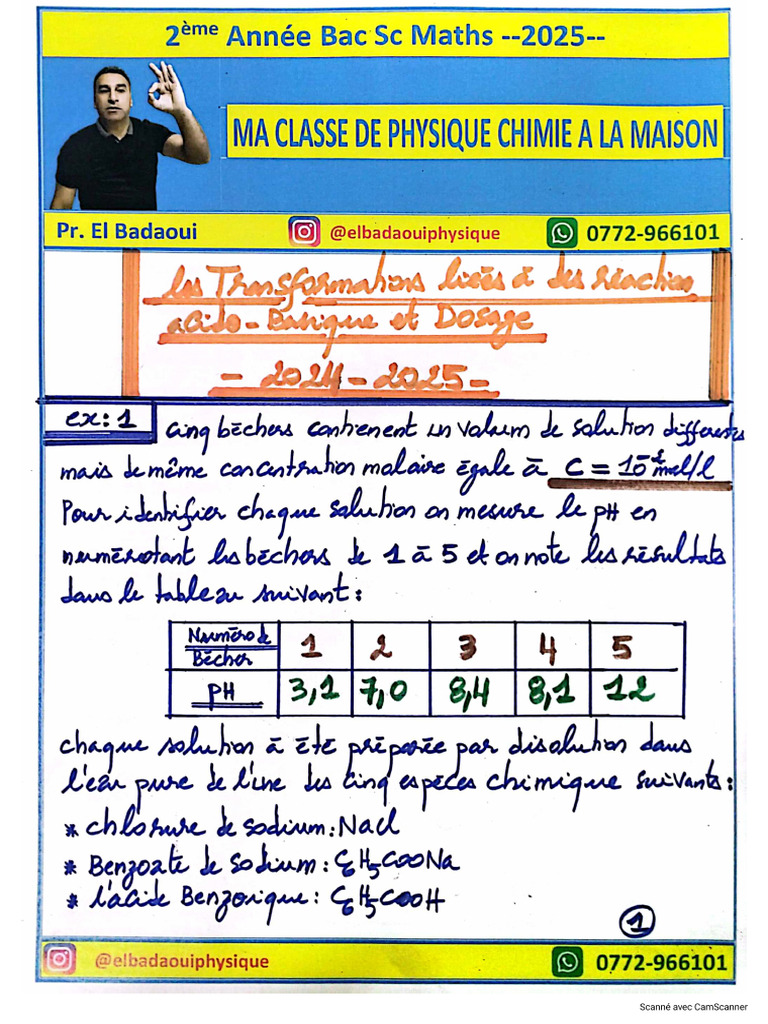 2ème Année Bac Sc Maths --2025--
MA CLASSE DE PHYSIQUE CHIMIE A LA MAISON
Pr. El Badaoui @elbadaouiphysique 0772-966101
Les Transformations liées à des réaction
acido-Basique et Dosage
- 2024-2025-
ex: 1 Cinq béchers contienent un volum de solution differentes
mais de même concentration molaire égale à C = 10⁻² mol/l
Pour identifier chaque solution on mesure le pH en
numérotant les béchers de 1 à 5 et on note les résultats
dans le tableau suivant:
Numéro de Bécher 1 2 3 4 5
pH 3,1 7,0 8,4 8,1 12
chaque solution à été préparée par disolution dans
l'eau pure de l'une des cinq espèces chimique suivants:
* chlorure de sodium: NaCl
* Benzoate de sodium: C₆H₅COONa
* l'acide Benzoïque: C₆H₅COOH
1
@elbadaouiphysique 0772-966101
Scanné avec CamScanner